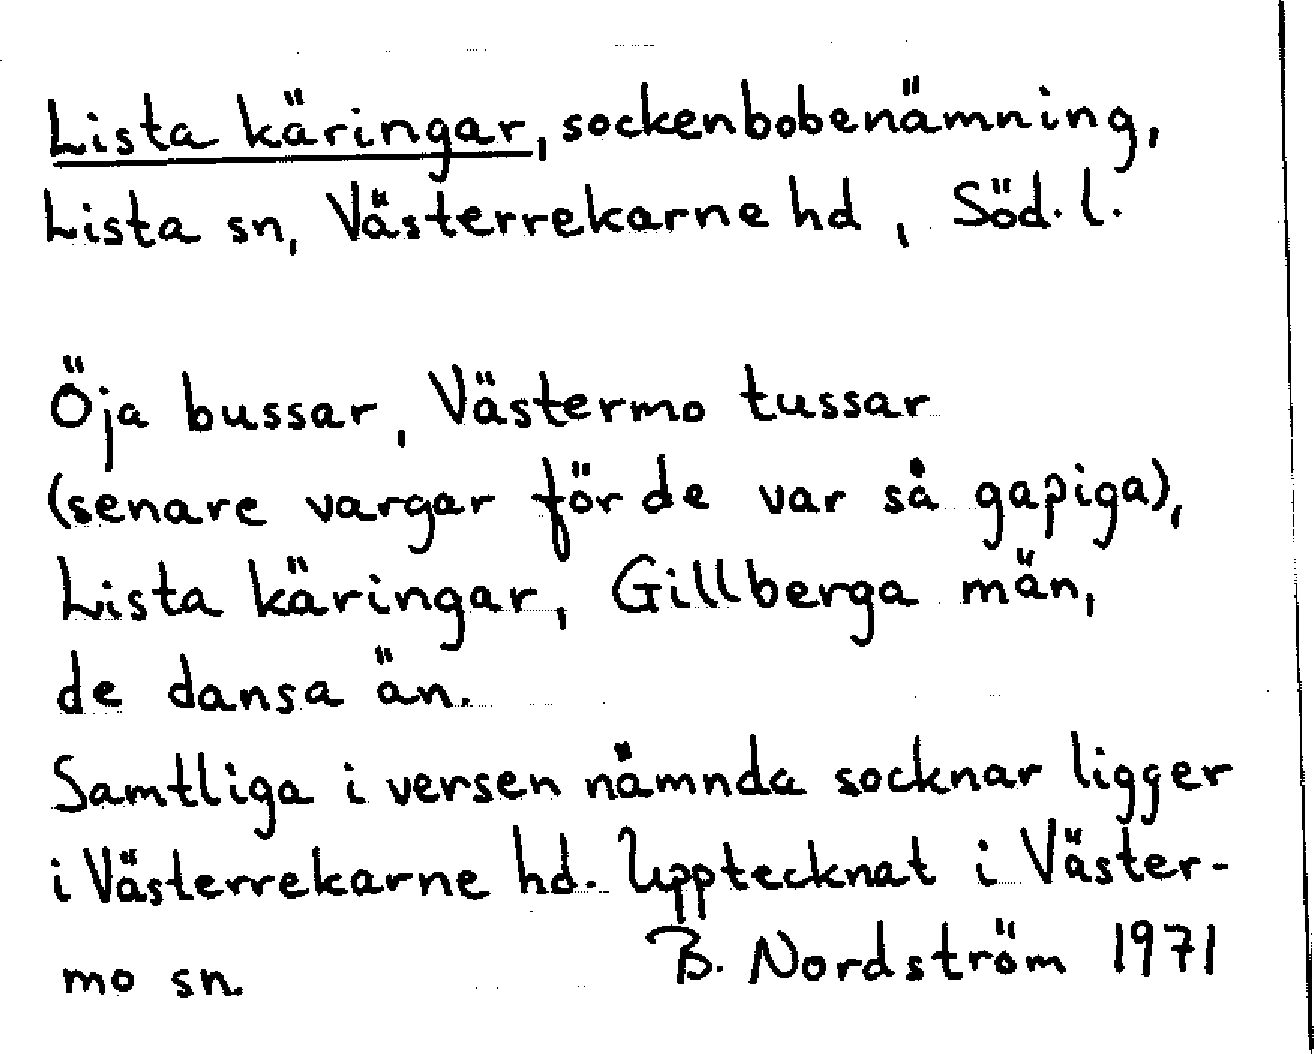 Lista käringar, sockenbobenämning,
Lista sn, Västerrekarne hd, Söd. l.
Öja bussar, Västermo tussar
(senare vargar för de var så gapiga),
Lista käringar, Gillberga män,
de dansa än.
Samtliga i versen nämnda socknar ligger
i Västerrekarne hd. Upptecknat i Väster-
mo sn. B. Nordström 1971